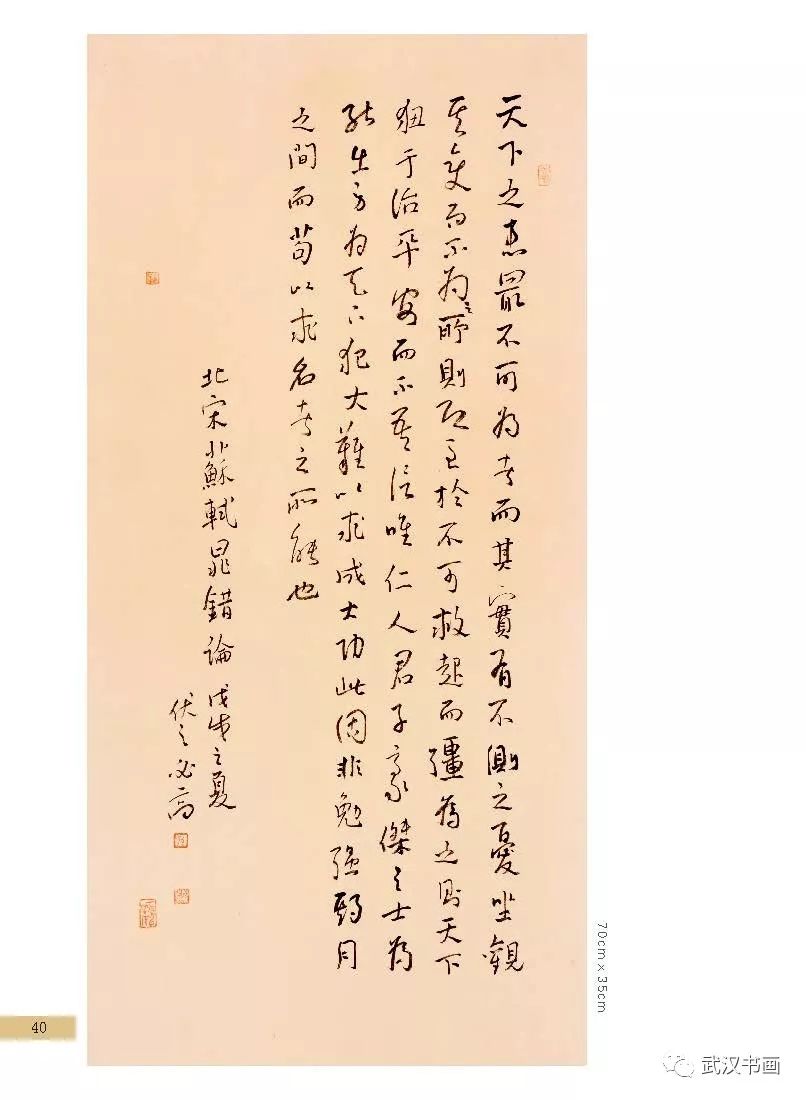 天下之患最不可為者而其實有不測之憂坐觀
其變而不為之所則恐至於不可救起而彊為之則天下
狃于治平安而不吾信唯仁人君子豪傑之士為
能出身為天下犯大難以求成大功此固非勉强期月
之間而苟以求名者之所能也
北宋蘇軾晁錯論 戊戌之夏
伏之必高
70cm×35cm
40
武汉书画